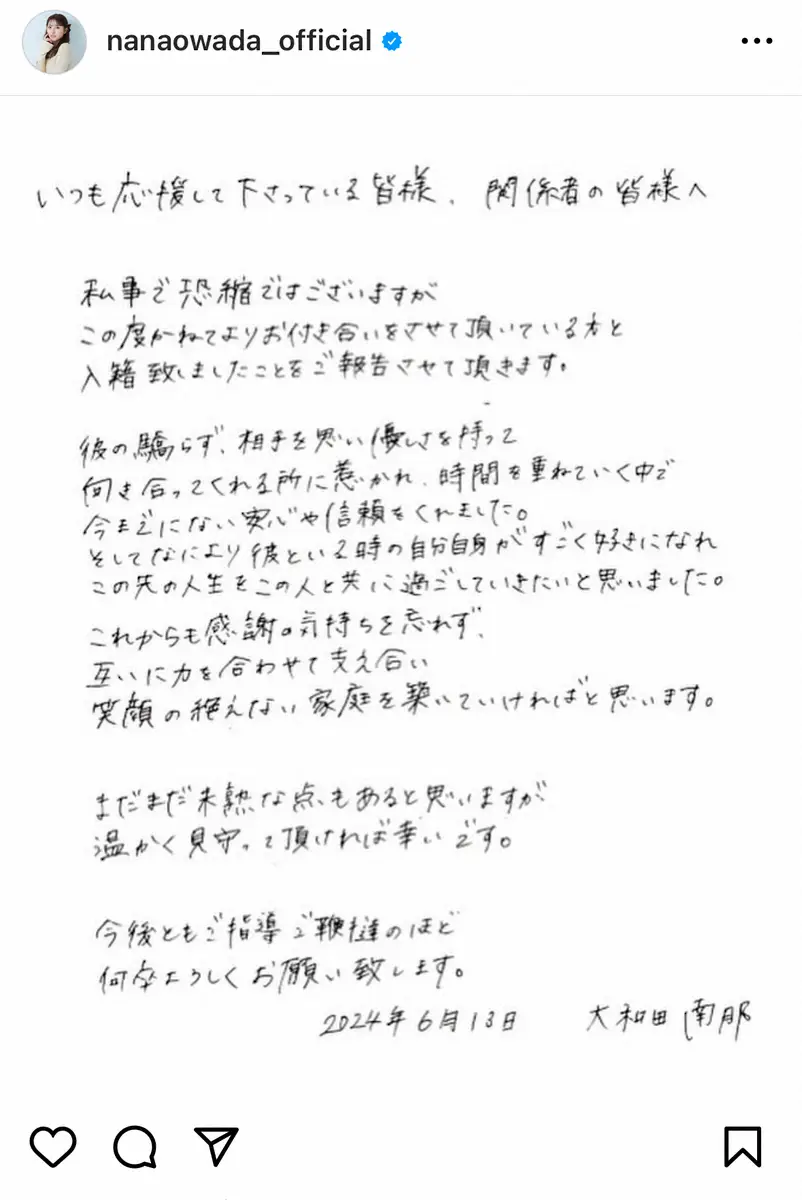 nanaowada_official
いつも応援して下さっている皆様、関係者の皆様へ
私事で恐縮ではございますが
この度かねてよりお付き合いをさせて頂いている方と
入籍致しましたことをご報告させて頂きます。
彼の驕らず、相手を思い優しさを持って
向き合ってくれる所に惹かれ、時間を重ねていく中で
今までにない安心や信頼をくれました。
そしてなにより彼といる時の自分自身がすごく好きになれ
この先の人生をこの人と共に過ごしていきたいと思いました。
これからも感謝の気持ちを忘れず、
互いに力を合わせて支え合い
笑顔の絶えない家庭を築いていければと思います。
まだまだ未熟な点もあると思いますが
温かく見守って頂ければ幸いです。
今後ともご指導ご鞭撻のほど
何卒よろしくお願い致します。
2024年6月13日 大和田南那